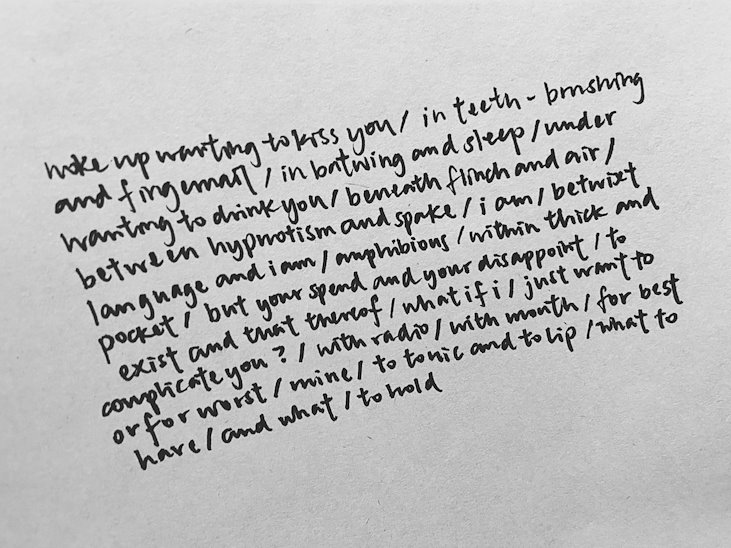 woke up wanting to kiss you / in teeth-brushing
and fingernail / in batwing and sleep / under
wanting to drink you / beneath flinch and air /
between hypnotism and spake / i am / betwixt
language and i am / amphibious / within thick and
pocket / but your spend and your disappoint / to
exist and that thereof / what if i / just want to
complicate you? / with radio / with mouth / for best
or for worst / mine / to tonic and to lip / what to
have / and what / to hold